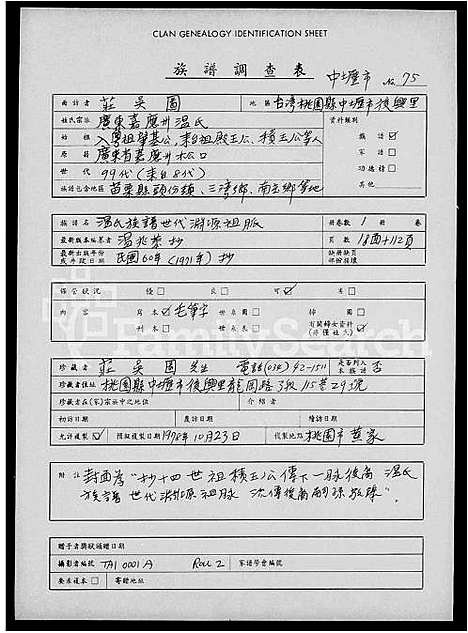 CLAN GENEALOGY IDENTIFICATION SHEET
族譜調查表 中壢市 No. 75
面訪者 莊吳圓 地區 台灣桃園縣中壢市復興里
姓氏宗派 廣東嘉應州溫氏 資料類別
始祖 入粵祖舉基公,來台祖殿玉公、積玉公等人 族譜 ✓
原籍 廣東省嘉應州松口 家譜
世代 99代(來台8代) 功德榜
族譜包含地區 苗栗縣頭份鎮、三灣鄉、南庄鄉等地 其他
譜名 溫氏族譜世代淵源祖脈 冊卷數 1 冊卷
最新版本編纂者 溫兆 抄 頁數 18面+112頁
最新出版年份或手設日期 民國60年(1971年)抄 缺冊缺頁部份別項
保管狀況 優 良 可 ✓ 差
內容 寫本 ✓ 毛筆字 世系圖 排圖
刊本 世系表 有關婦女資料(非僅姓久)
珍藏者 莊吳圓先生 電話(034)42-1511 是否列入本族譜 否
珍藏者住址 桃園縣中壢市復興里龍岡路3段115巷29號
珍藏者在(家)宗派中之地位 介紹者
初訪日期 度訪日期 續訪日期
允許複製 ✓ 預擬複製日期 1978年10月23日 複製地點 桃園市黃家
附註 封面為"抄十四世祖積玉公傳下一脈後裔 溫氏
族譜世代淵源祖脈 流傳後裔
贈予者獎狀頒贈日期
攝影者編號 TAI 0001 A Roll 2 家譜學會編號
要求複本 寄贈地址
FamilySearch